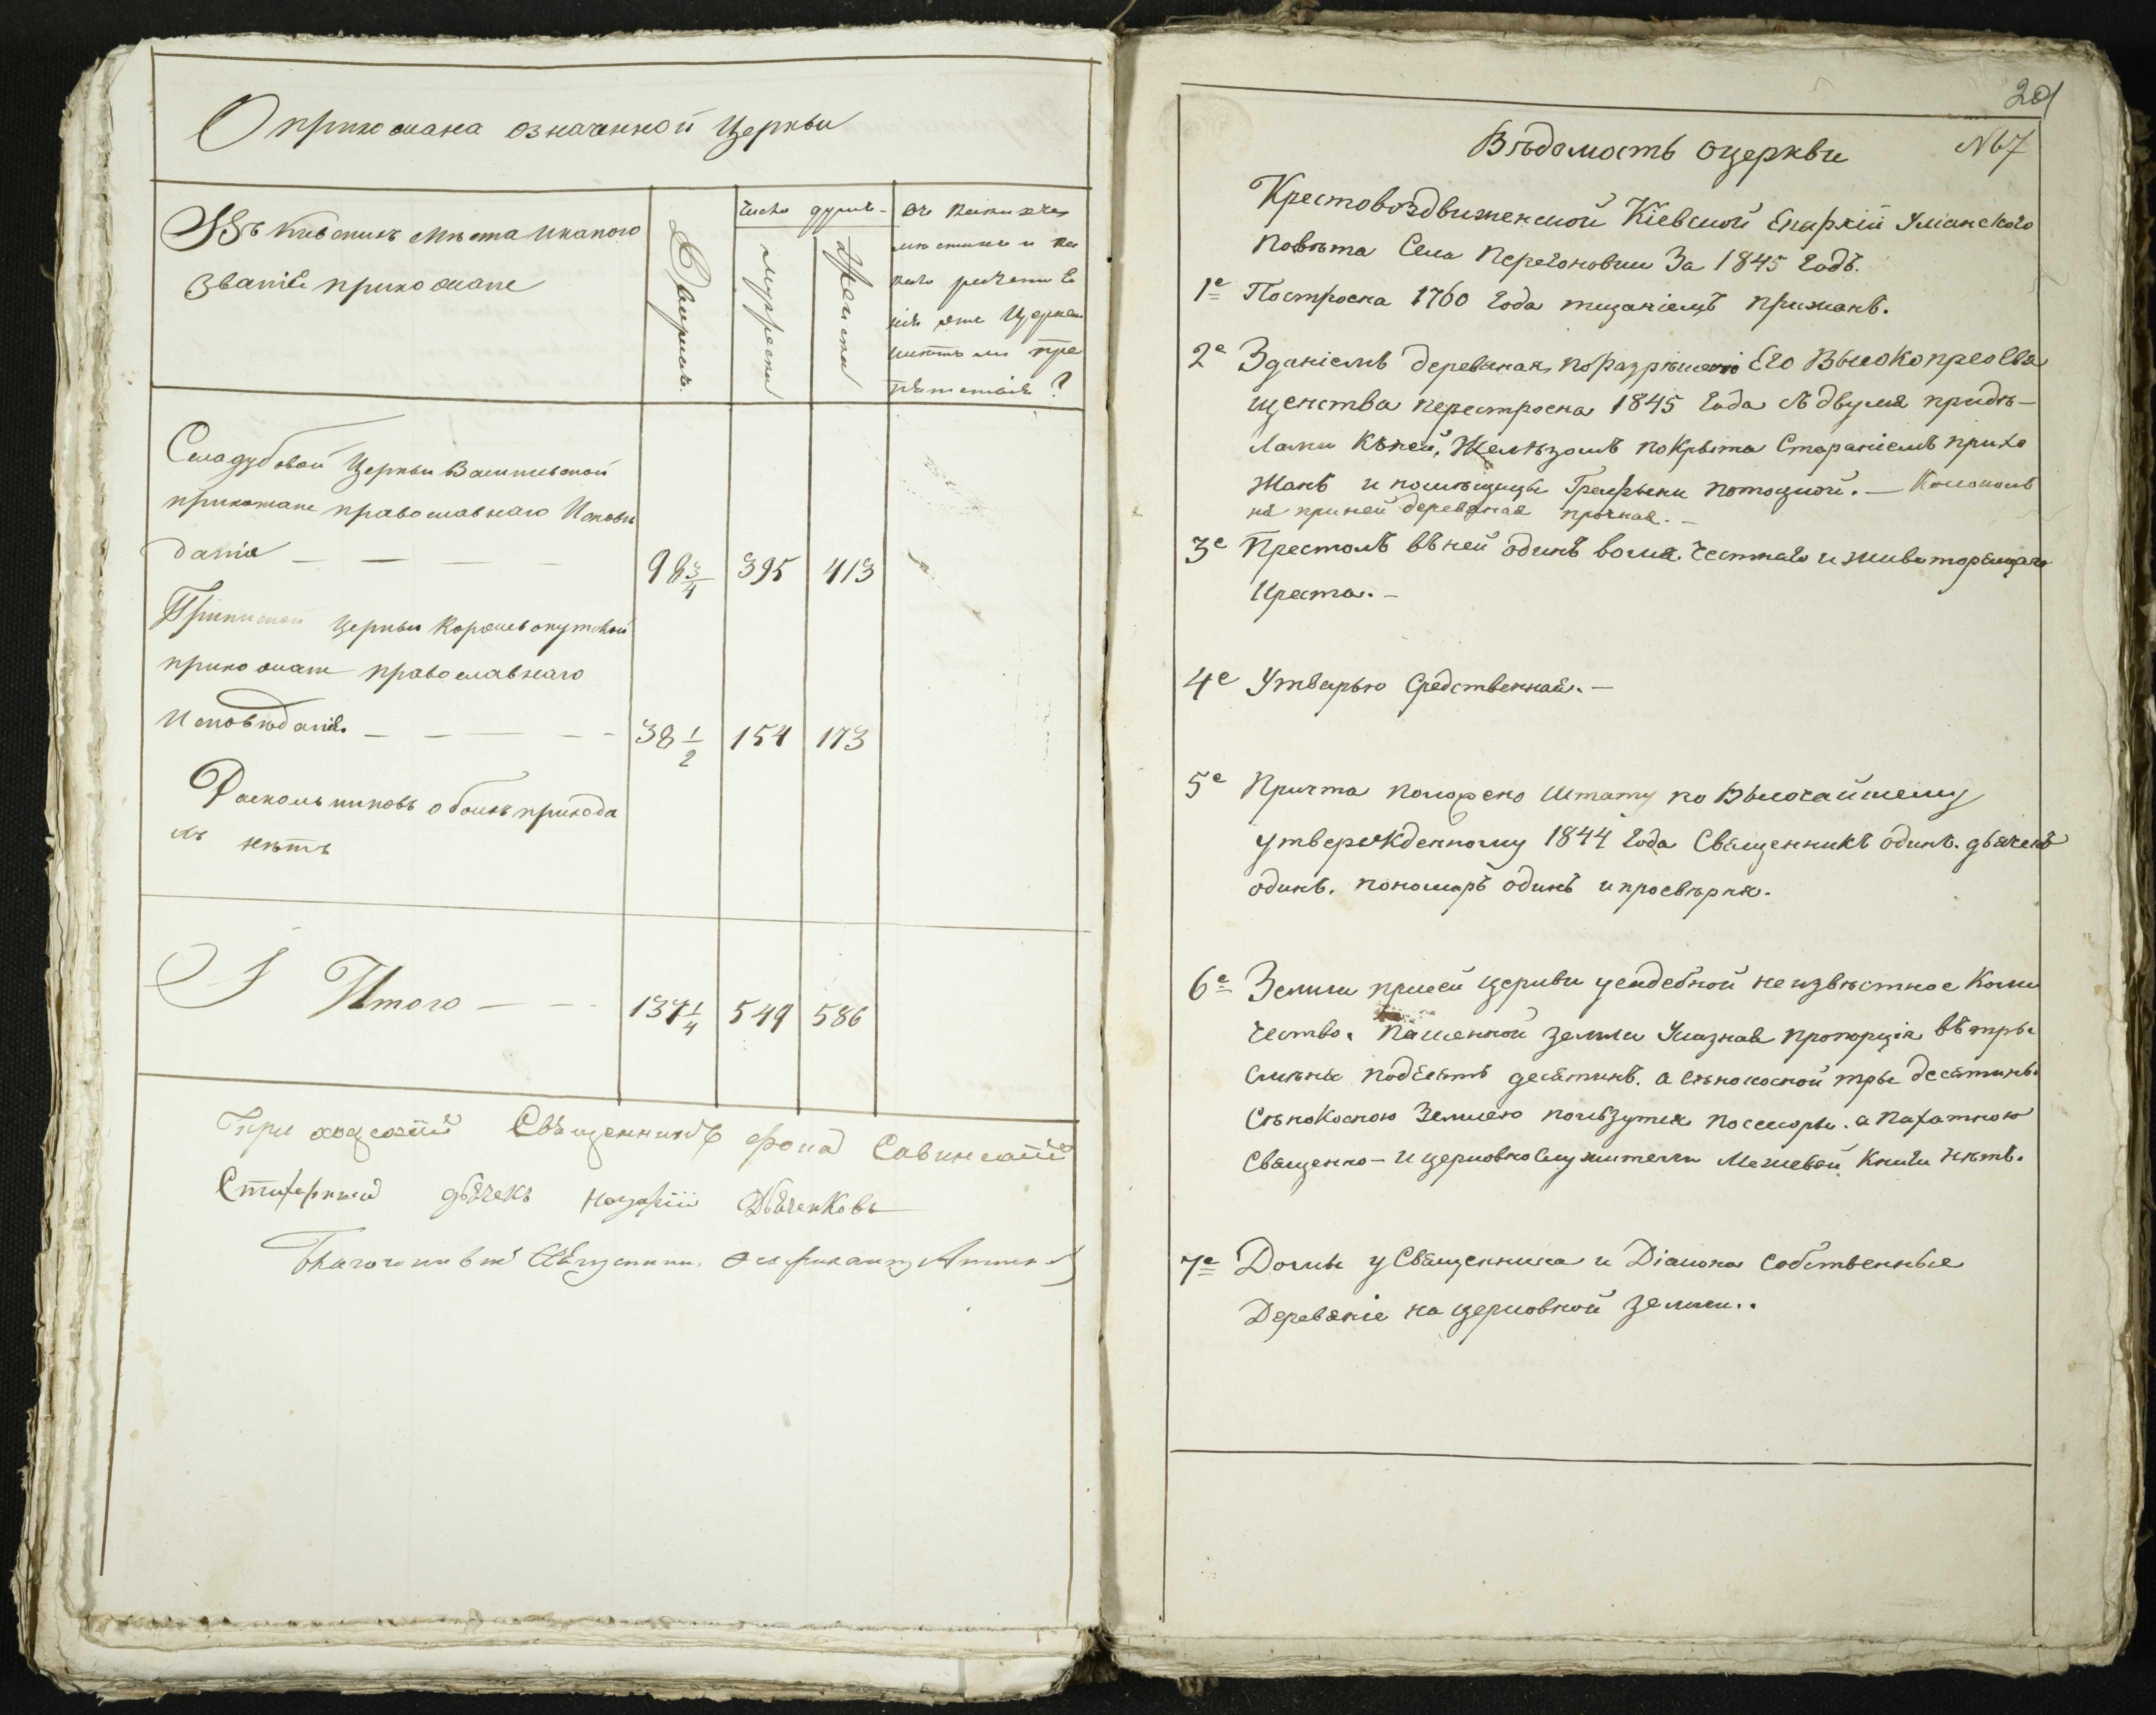 О прихожана означенной Церкви
Изъ какихъ мѣста и какого
званiе прихожане
Дворовъ.
Число душъ
мужеска
женска
Въ какихъ
мѣстахъ и ка
нiе отъ Церкви
нѣтъ ли пре
пятствiя?
Села дубовой Церкви Васильевской
прихожане православнаго Исповѣ
данiя — — — —
98 3/4
395
413
Приписной Церкви Коржевокутской
прихожане православнаго
Исповѣданiя. — — — — —
38 1/2
154
173
Раскольниковъ обоихъ прихода
хъ нѣтъ
Итого — —
137 1/4
549
586
Приходскiй Священникъ Савинскiй
Стихарный дьячекъ Назарiй Дьяченковъ
Благочинный
201
Вѣдомость о церкви №7
Крестовоздвиженской Кiевской Епархiи Уманского
повѣта Села Перегоновки За 1845 годъ.
1е Построена 1760 года тщанiемъ прижанъ.
2е Зданiемъ деревяная, по разрѣшенiю Его Высокопреосвя
щенства перестроена 1845 года съ двумя придѣ-
лами къ ней, Желѣзомъ покрыта Старанiемъ прихо
жанъ и помѣщицы Графини Потоцкой. — Колоколь
на при ней деревяная прочная. —
3е Престолъ въ ней одинъ во имя Честнаго и животворящаго
Креста. —
4е Утварью Средственная. —
5е Причта положено Штату по Высочайшему
утвержденному 1844 года Священникъ одинъ. дьячекъ
одинъ. пономарь одинъ и просвѣрня.
6е Земли при сей церкви усадебной неизвѣстное коли
чество. Пашенной земли Указная пропорцiя въ тры
смѣны подесять десятинъ. а сѣнокосной тры десятины.
Сѣнокосною Землею пользутся поссесоры. а пахатною
Священно- и церковно служители Межевой Книги нѣтъ.
7е Домы у Священника и Дiакона собственные
Деревянiе на церковной земли..